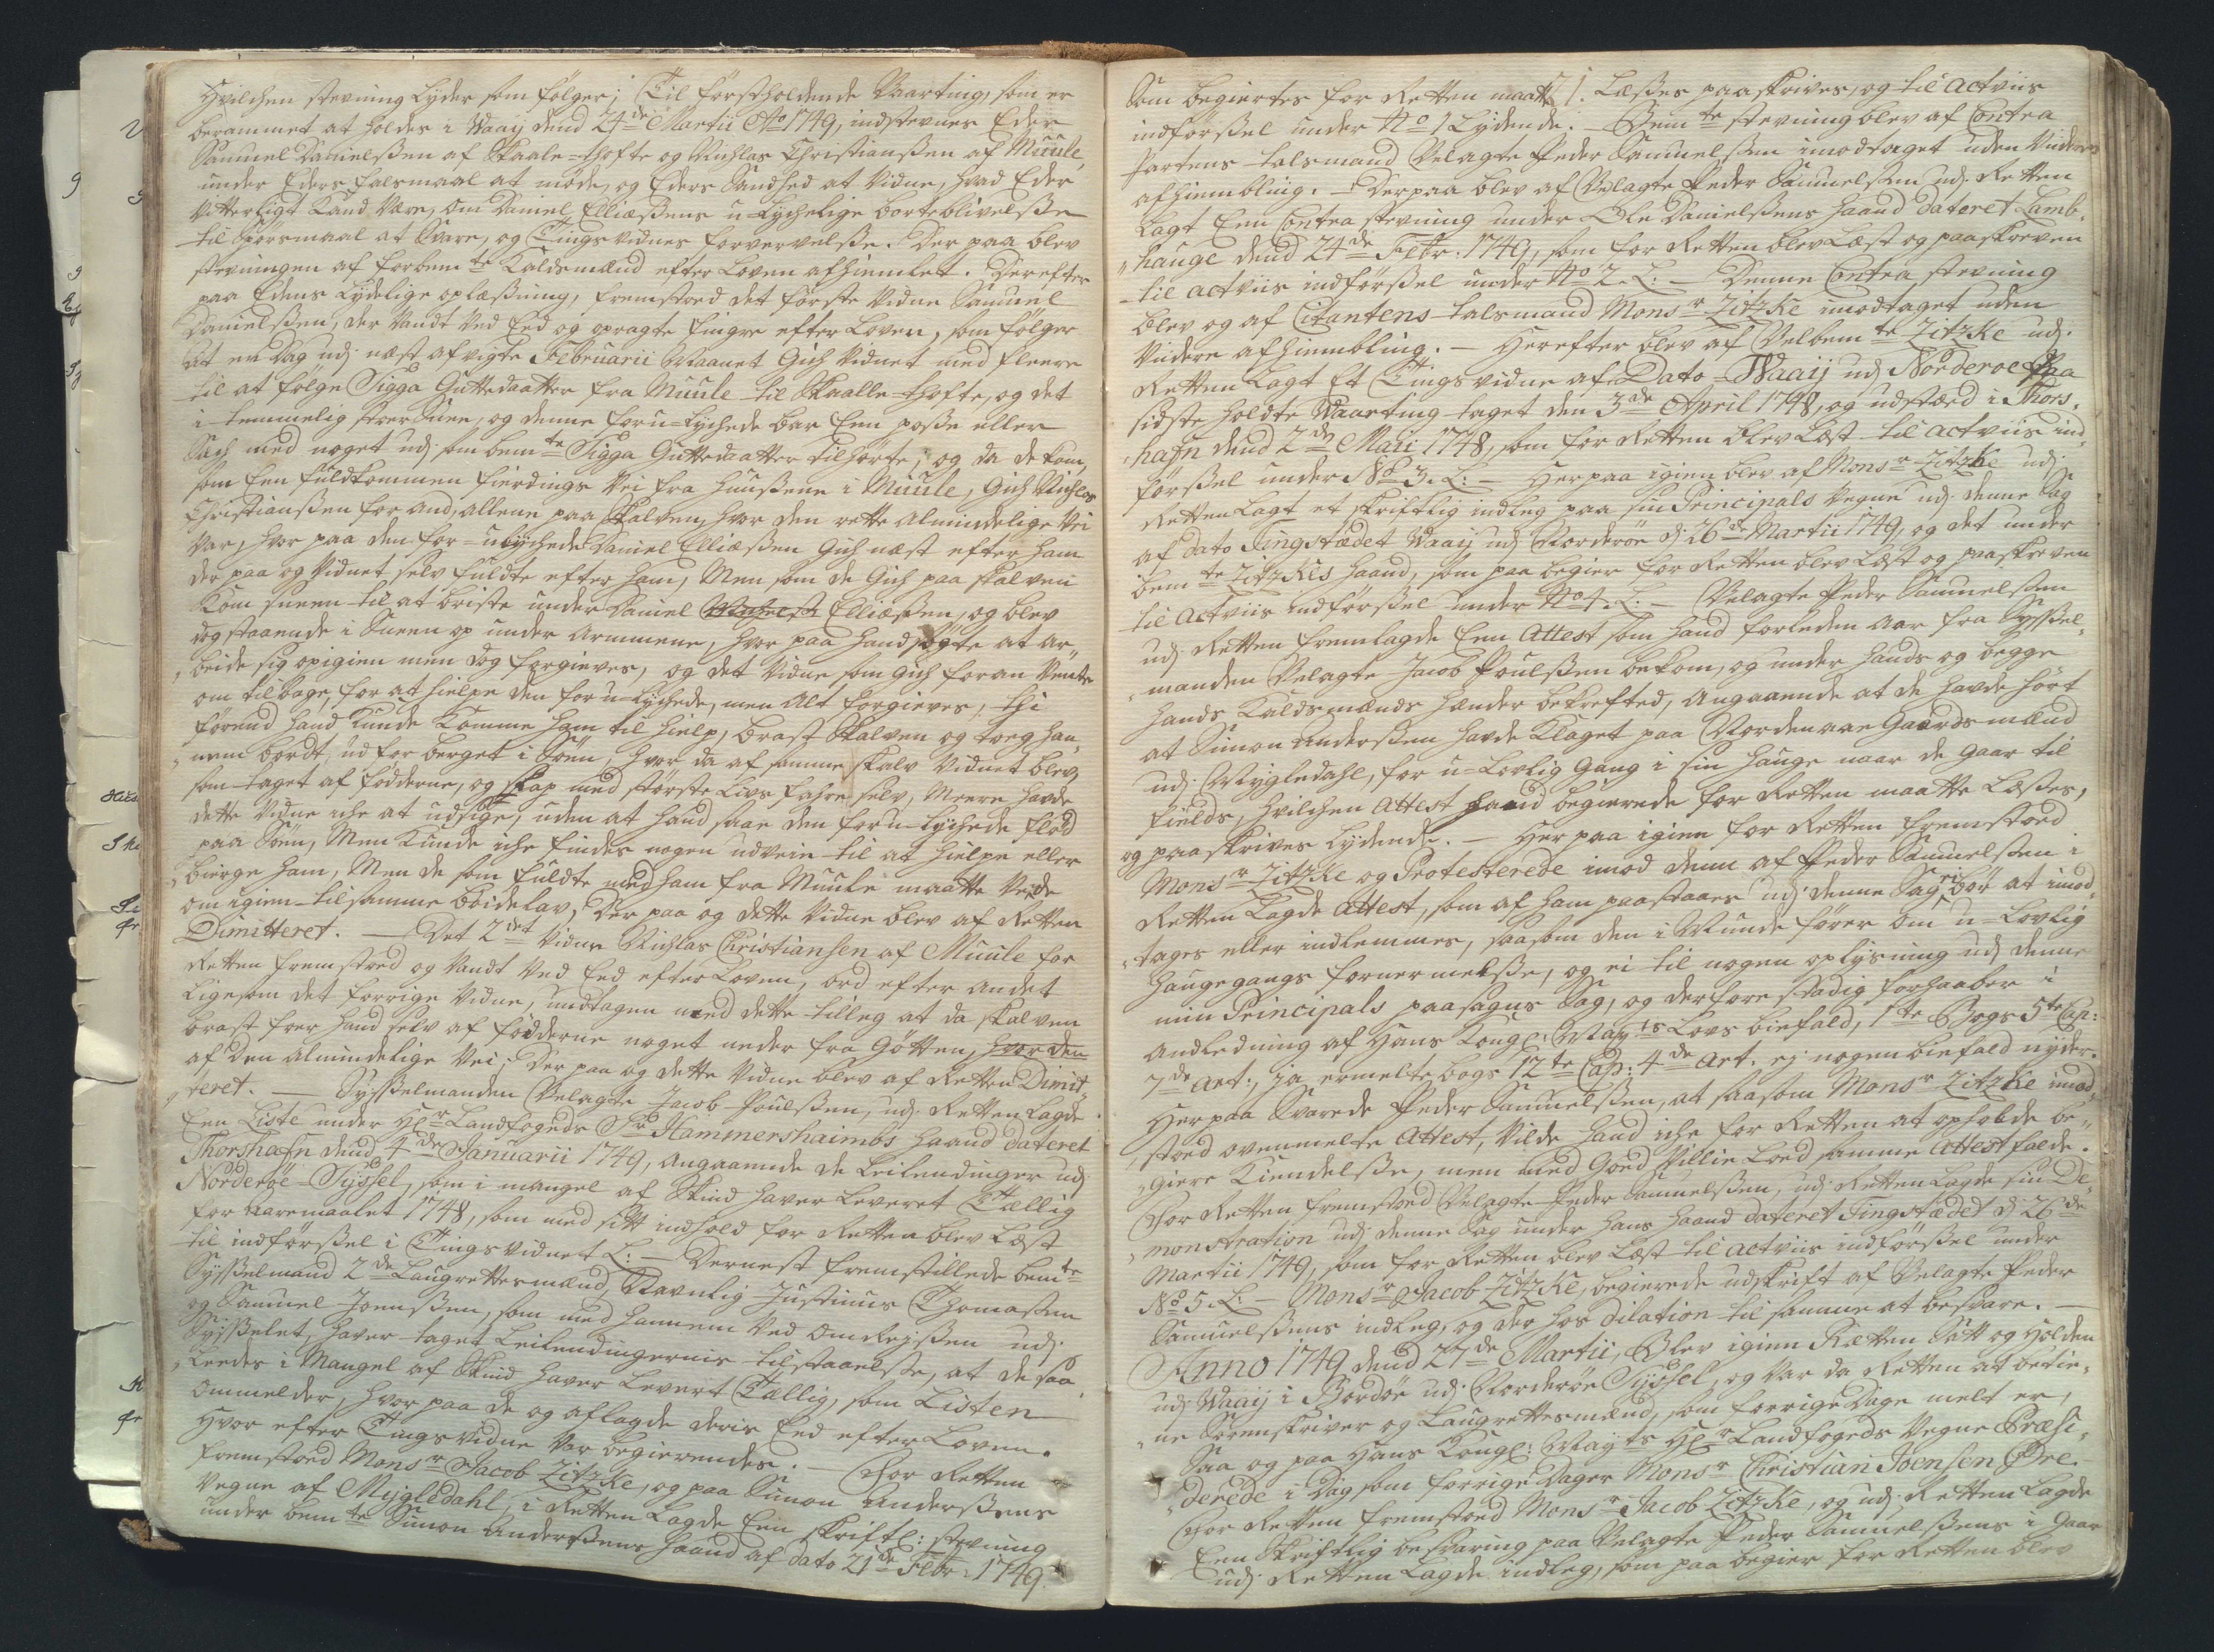 Hvilchen stevning lyder som følger; Til førstholdende Vaarting, som er
berammet at holdes i Waaÿ dend 24de Martii Ao 1749, indstevnes Eder
Samuel Danielsßen af Skaale-thofte og Nichlas Christiansßen af Muule,
under Eders falsmaal at møde, og Eders Sandhed at vidne, hvad Eder
vitterligt kand være, om Daniel Elliæsßens u-lychelige borteblivelsße
til Spørsmaal at Svare, og Tingsvidnes forvervelsße. Der paa blev
stevningen af forbemte Kaldsmænd efter Loven afhiemlet. Derefter
paa Edens lydelige oplæsßning, fremstoed det første Vidne Samuel
Danielsßen, der vandt ved Eed og opragte fingre efter Loven, som følger
At en Dag udj næst afvigte Februarii Maanet Gich Vidnet med fleere
til at følge Sigga Guttedaatter fra Muule til Skaalle-thofte, og det
i temmelig stoer Snee, og denne foru-lychede bar Een posße eller
Sech med noget udj som bemte Sigga Guttedaatter tilhørte, og da de kom,
som Een fuldkommen fierdings Vei fra huusßene i Muule, Gich Nichlas
Christiansßen for and, allene paa Skalven, hvor den rette almindelige Vei
var, hvor paa den for-ulychede Daniel Elliæsßen Gich næst efter ham
der paa og Vidnet selv fuldte efter ham, Men som de Gich paa skalven
kom sneen til at briste under Daniel Elliæsßen, og blev
dog staaende i Sneen op under Armmene, hvor paa hand søgte at ar„
„beide sig opigien men dog forgieves, og det Vidne som gich foran vente
om tilbage, for at hielpe den foru-lychede, men alt forgieves, thi
førend hand kunde komme ham til hielp, brast Skalven og toeg han„
„nem bordt, ud for berget i Søen, hvor da af samme skalv Vidnet blev
som taget af fødderne, og slap med største Livs fahre selv, Meere havde
dette Vidne iche at udsige, uden at hand saae den foru-lychede flød
paa Søen, Men kunde iche findes nogen udveie til at hielpe eller
„bierge ham, Men de som fuldte med ham fra Muule maatte vende
om igien til samme boidelav, der paa og dette Vidne blev af Retten
Dimitteret. — Det 2det Vidne Nichlas Christiansen af Muule for
Retten fremstoed og vandt ved Eed efter Loven, ord efter andet
ligesom det forrige Vidne, undtagen med dette tilleg at da skalven
brast foer hand selv af fødderne noget neder fra Gøtten, hvor den
af den almindelige Vei; Der paa og dette Vidne blev af Retten Dimit„
„teret. — Sysßelmanden Velagte Jacob Poulsßen, udj Retten lagde
Een Liste under Hr Landfogeds Sr Hammershaimbs haand dateret
Thorshafn dend 4de Januarii 1749, angaaende de Leilendinger udj
Norderøe-Sÿssel, som i mangel af Skind haver leveret Tællig
for aaremaalet 1748, som med sitt indhold for Retten blev læst
til indførsßel i Tingsvidnet L: — Dernest fremstillede bemte
Sysßelmand 2de Laugrettesmænd, Navnlig Justinus Thomasßen
og Samuel Joensßen, som med hannem ved omReisßen udj
Sysßelet, haver taget Leilendingernis tilstaaelsße, at de saa„
„ledes i Mangel af Skind haver levert Tællig, som Listen
Ommelder, hvor paa de og aflagde deris Eed efter Loven.
Hvor efter Tingsvidne var begierendes. — For Retten
fremstoed Monsr Jacob Zitzke, og paa Simon Andersßens
Vegne af Mÿgledahl, i Retten lagde Een skriftl: stevning
under bemte Simon Andersßens haand af dato 21de Febr: 1749.
Som begiertes for Retten maatte læsßes paaskrives, og til actviis
indførsßel under No 1 Lydende. — Bemte stevning blev af Contra
Partens talsmand Velagte Peder Samuelsßen imodtaget uden videre
afhiembling. — Derpaa blev af Velagte Peder Samuelsßen udj Retten
lagt Een Contra stevning under Ole Danielsßens haand dateret Lamb„
„hauge dend 24de Febr: 1749, som for Retten blev læst og paaskreven
til actviis indførsßel under No 2. L: — Denne Contra stevning
blev og af Citantens talsmand Monsr Zitzke imodtaget uden
videre afhiembling. — Herefter blev af Velbemte Zitzke udj
Retten lagt Et Tingsvidne af Dato Waaij udj Norderøe Paa
sidste holdte Vaarting taget den 3de April 1748, og udstæed i Thors„
„hafn dend 2de Maii 1748, som for Retten blev læst til actviis ind„
„førsßel under No 3. L: — Herpaa igien blev af Monsr Zitzke udj
Retten lagt et skriftlig indleg paa sin Principals Vegne udj denne Sag
af dato Tingstædet Waaij udj Norderøe d: 26de Martii 1749, og det under
bemte Zitzkes haand, som paa begier for Retten blev læst og paaskreven
til Actviis indførsßel under No 4. L: — Velagte Peder Samuelsßen
udj Retten fremlagde Een Attest som hand forleden Aar fra Sysßel„
„manden Velagte Jacob Poulsßen bekom, og under hands og begge
hands Kaldsmænds hænder bekrefted, Angaaende at de havde hørt
at Simon Andersßen havde klaget paa Nordenaae Gaardsmænd
udj Mygledahl, for u-Lovlig Gang i sin hauge naar de gaar til
fields, hvilchen Attest hand begierede for Retten maatte læsßes,
og paaskrives lydende. — Her paa igien for Retten fremstoed
Monsr Zitzke og Protesterede imod denne af Peder Samuelsßen i
Retten lagde Attest, som af ham paastaaes udj denne Sag ei bør at imod„
„tages eller indlemmes, saasom den i Munde fører om u-lovlig
haugegangs fornermelsße, og ei til nogen oplysning udj denne
min Principals paasagns Sag, og derfore stadig forhaaber i
Andledning af Hans Kongl: Mayts Lovs biefald, 1te Bogs 5te Cap:
7de Art:, ja ermelte bogs 12te Cap: 4de Art. ej nogen biefald nyder.
Herpaa Svarede Peder Samuelsßen, at saasom Monsr Zitzke imod„
„stoed ovenmelte Attest, vilde hand iche for Retten at opholde be„
„giere Kiendelsße, men med Goed Villie loed samme Attest falde.
For Retten fremstoed Velagte Peder Samuelsßen, udj Retten lagde sin De„
„monstration udj denne Sag under hans haand dateret Tingstædet d: 26de
Martii 1749, som for Retten blev læst til actviis indførsßel under
No 5. L: — Monsr Jacob Zitzke, begierede udskrift af Velagte Peder
Samuelsßens indleg, og der hos Dilation til samme at besvare. —
Anno 1749 dend 27de Martii, Blev igien Rætten Satt og holden
udj Waaij i Bordøe udj Norderøe Sÿssel, og var da Retten at betie„
„ne Sorenskriver og Laugrettesmænd, som forrige Dage melt er,
Saa og paa Hans Kongl: Mayts Hr Landfogeds Vegne Præsi„
„derede i Dag som forrige Dager Monsr Christian Joensen Øre.
For Retten fremstoed Monsr Jacob Zitzke, og udj Retten lagde
Een Skriftlig besvaring paa Velagte Peder Samuelsßens i Gaar
udj Retten lagde indleg, som paa begier for Retten blev